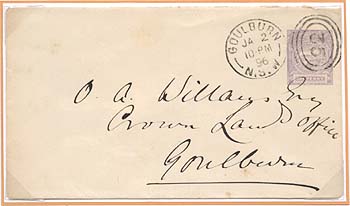 GOULBURN
JA 2
10·PM
96
N.S.W
PENNY
O. A. Willans Esq
Crown Land Office
Goulburn